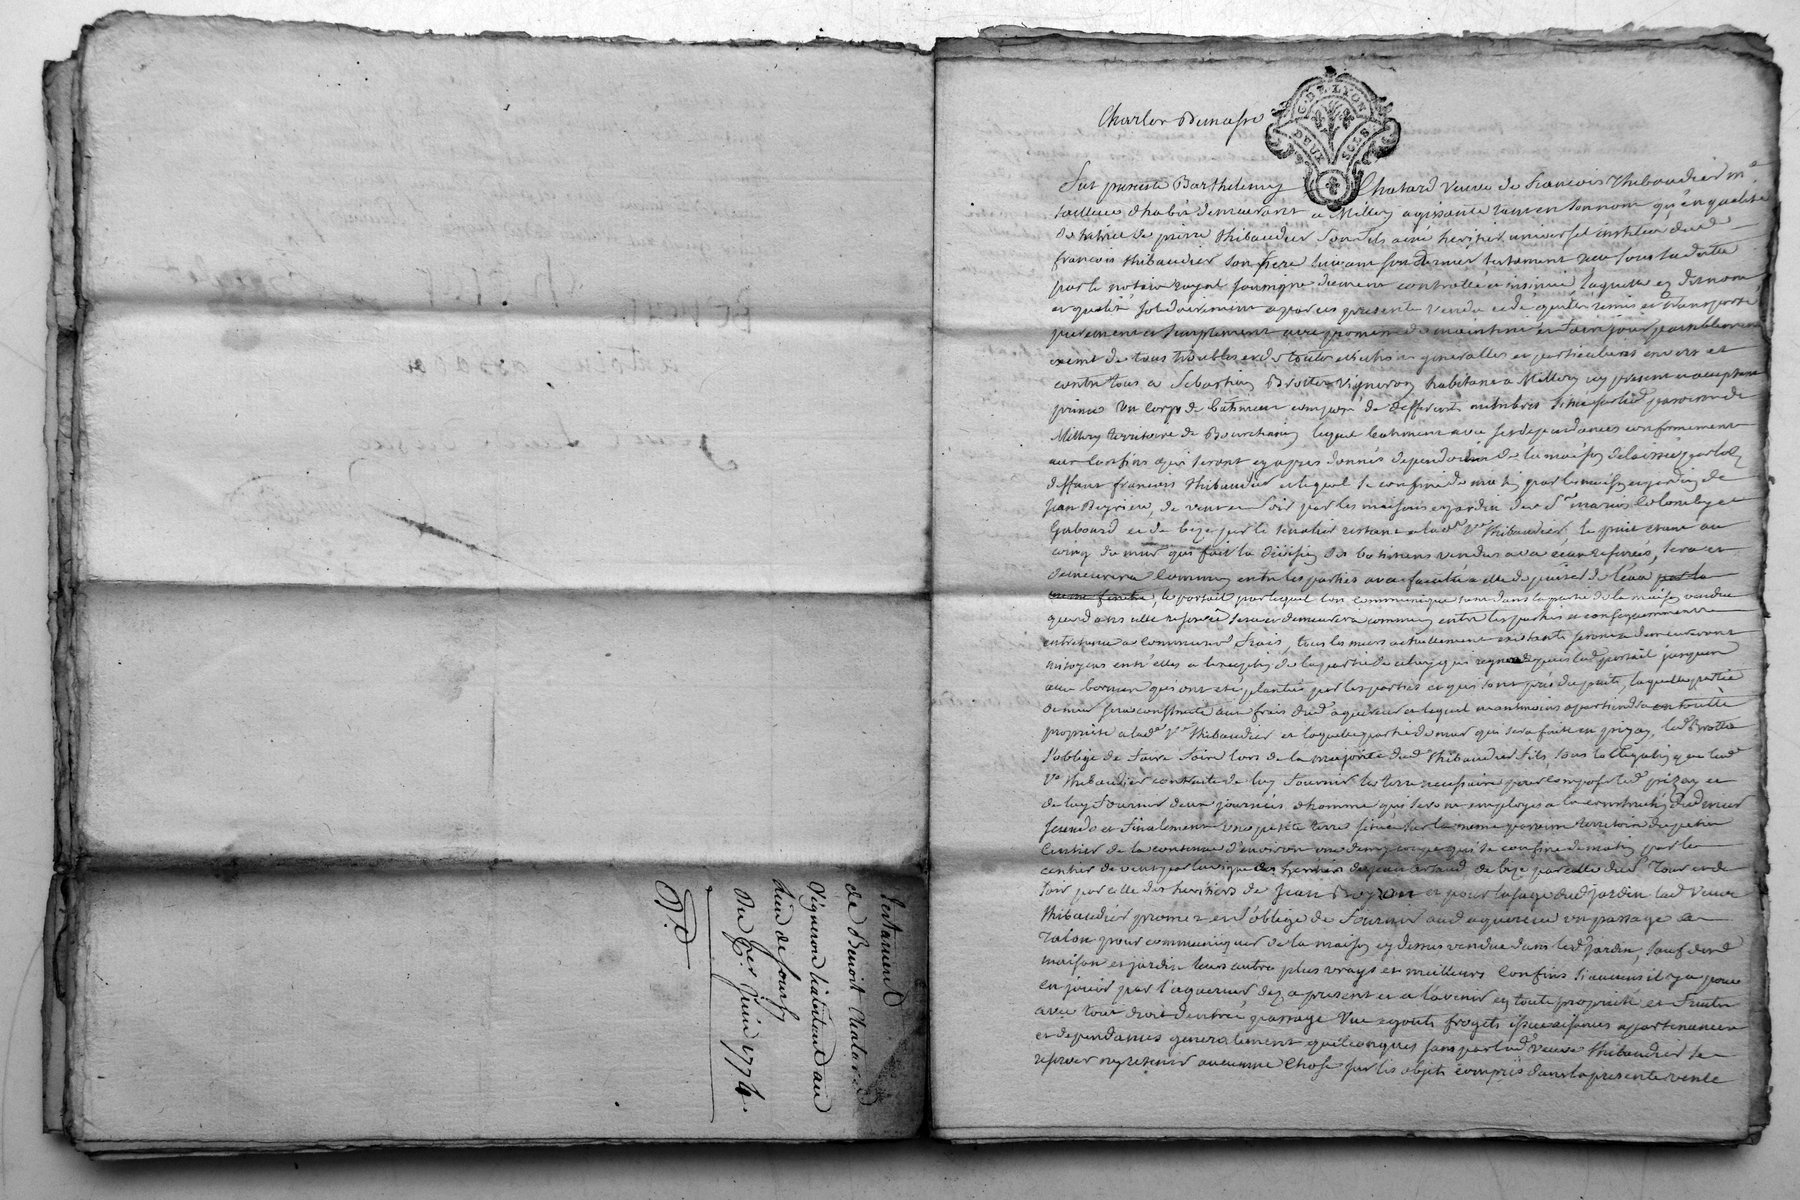 Testament
de Benoit Chatard
Vigneron habitant au
lieu de Sourzy
Du 1er juin 1774.
G. DE LYON
DEUX SOLS
Charles Demasso
Fut presente Barthelemy Chatard veuve de François Thibaudier me
tailleur d'habit demeurant a Millery agissante tant en son nom qu'en qualité
de tutrice de pierre Thibaudier son fils ainé heritier universel institué dud
françois Thibaudier son pere suivant son dernier testament reçu sous sa datte
par le notaire royal soussigné duement controllé et insinué, laquelle ey dit nom
et qualité solidairement a par ces presente vendu cedé quitté remis et transporté
purement et simplement avec promesse de maintenir et faire jouir paisiblement
exempt de tous troubles et de toutes evictions generalles et particulieres envers et
contre tous a Sebastien Brottet Vigneron habitant a Millery icy present et acceptant
un corps de batiment composé de differents membres situé sur lad parroisse de
Millery territoire de Bourchanin lequel batiment avec ses dependances conformement
aux confins qui seront cy apres donnés depend de la maison delaissée par led
deffunt françois Thibaudier et lequel se confine de matin par les maison et jardin de
Jean Beyriere, de vent et soir par les maisons et jardin des Sr marius Colomby et
Gabourd et de bize par le tenalier restant a lad Ve Thibaudier. Le puit etant au
coing du mur qui fait la division des batimens vendus avec ceux refervés, sera et
demeurera commun entre les parties avec faculté a elle de puiser de l'eau par la
meme fenetre, le portail par lequel l'on communique tant dans la partie de la maison vendue
que dans celle reservée sera et demeurera commun entre les parties et consequemment
entretenu a communs frais, tous les murs actuellement existants seront et demeureront
mitoyens entr'elles a l'exception de la partie de celuy qui regne depuis led portail jusques
aux bornes qui ont eté plantées par les parties et qui sont près du puits, laquelle partie
de mur sera construite aux frais dud aquereur et lequel neantmoins apartiendra en toutte
propriété a lad Ve Thibaudier et laquelle partie de mur qui sera faite en pizay, led Brottet
s'oblige de faire faire lors de la majorité dud Thibaudier fils, sous l'obligation que lad
Ve Thibaudier contracte de luy fournir la terre necessaire pour composer led pizay et
de luy fournir deux journées d'homme qui seront employés a la construction dud mur
secundo et finalement une petite terre située sur la meme parroisse territoire du petit
sentier de la contenue d'environ une demy coupe qui se confine de matin par le
sentier de vent par la vigne des heritiers de Jean Artaud de bize par celle du Sr Tour et de
soir par celle des heritiers de Jean et pour l'usage dud jardin lad veuve
Thibaudier promet et s'oblige de fournir aud aquereur un passage a
Talon pour communiquer de la maison cy dessus vendue dans led jardin, sauf desd
maison et jardin leurs autres plus vrays et meilleurs confins si aucuns il y a pour
en jouir par l'aquereur dez a present et a l'avenir en toute propriété et fruits
avec tout droit d'entrée passage vue egouts frogets issue aisances appartenances
et dependances generalement quelconques sans par lad veuve Thibaudier se
reserver ny retenir aucune chose sur les objets compris dans la presente vente